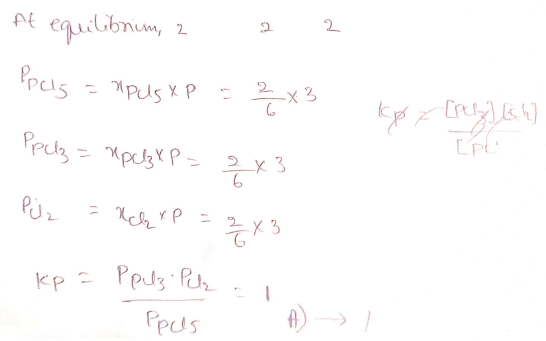 At equilibrium, 2 2 2
P_PCl5 = x_PCl5 × P = 2/6 × 3
P_PCl3 = x_PCl3 × P = 2/6 × 3
P_Cl2 = x_Cl2 × P = 2/6 × 3
Kp = P_PCl3 · P_Cl2 / P_PCl5 = 1
A) → 1